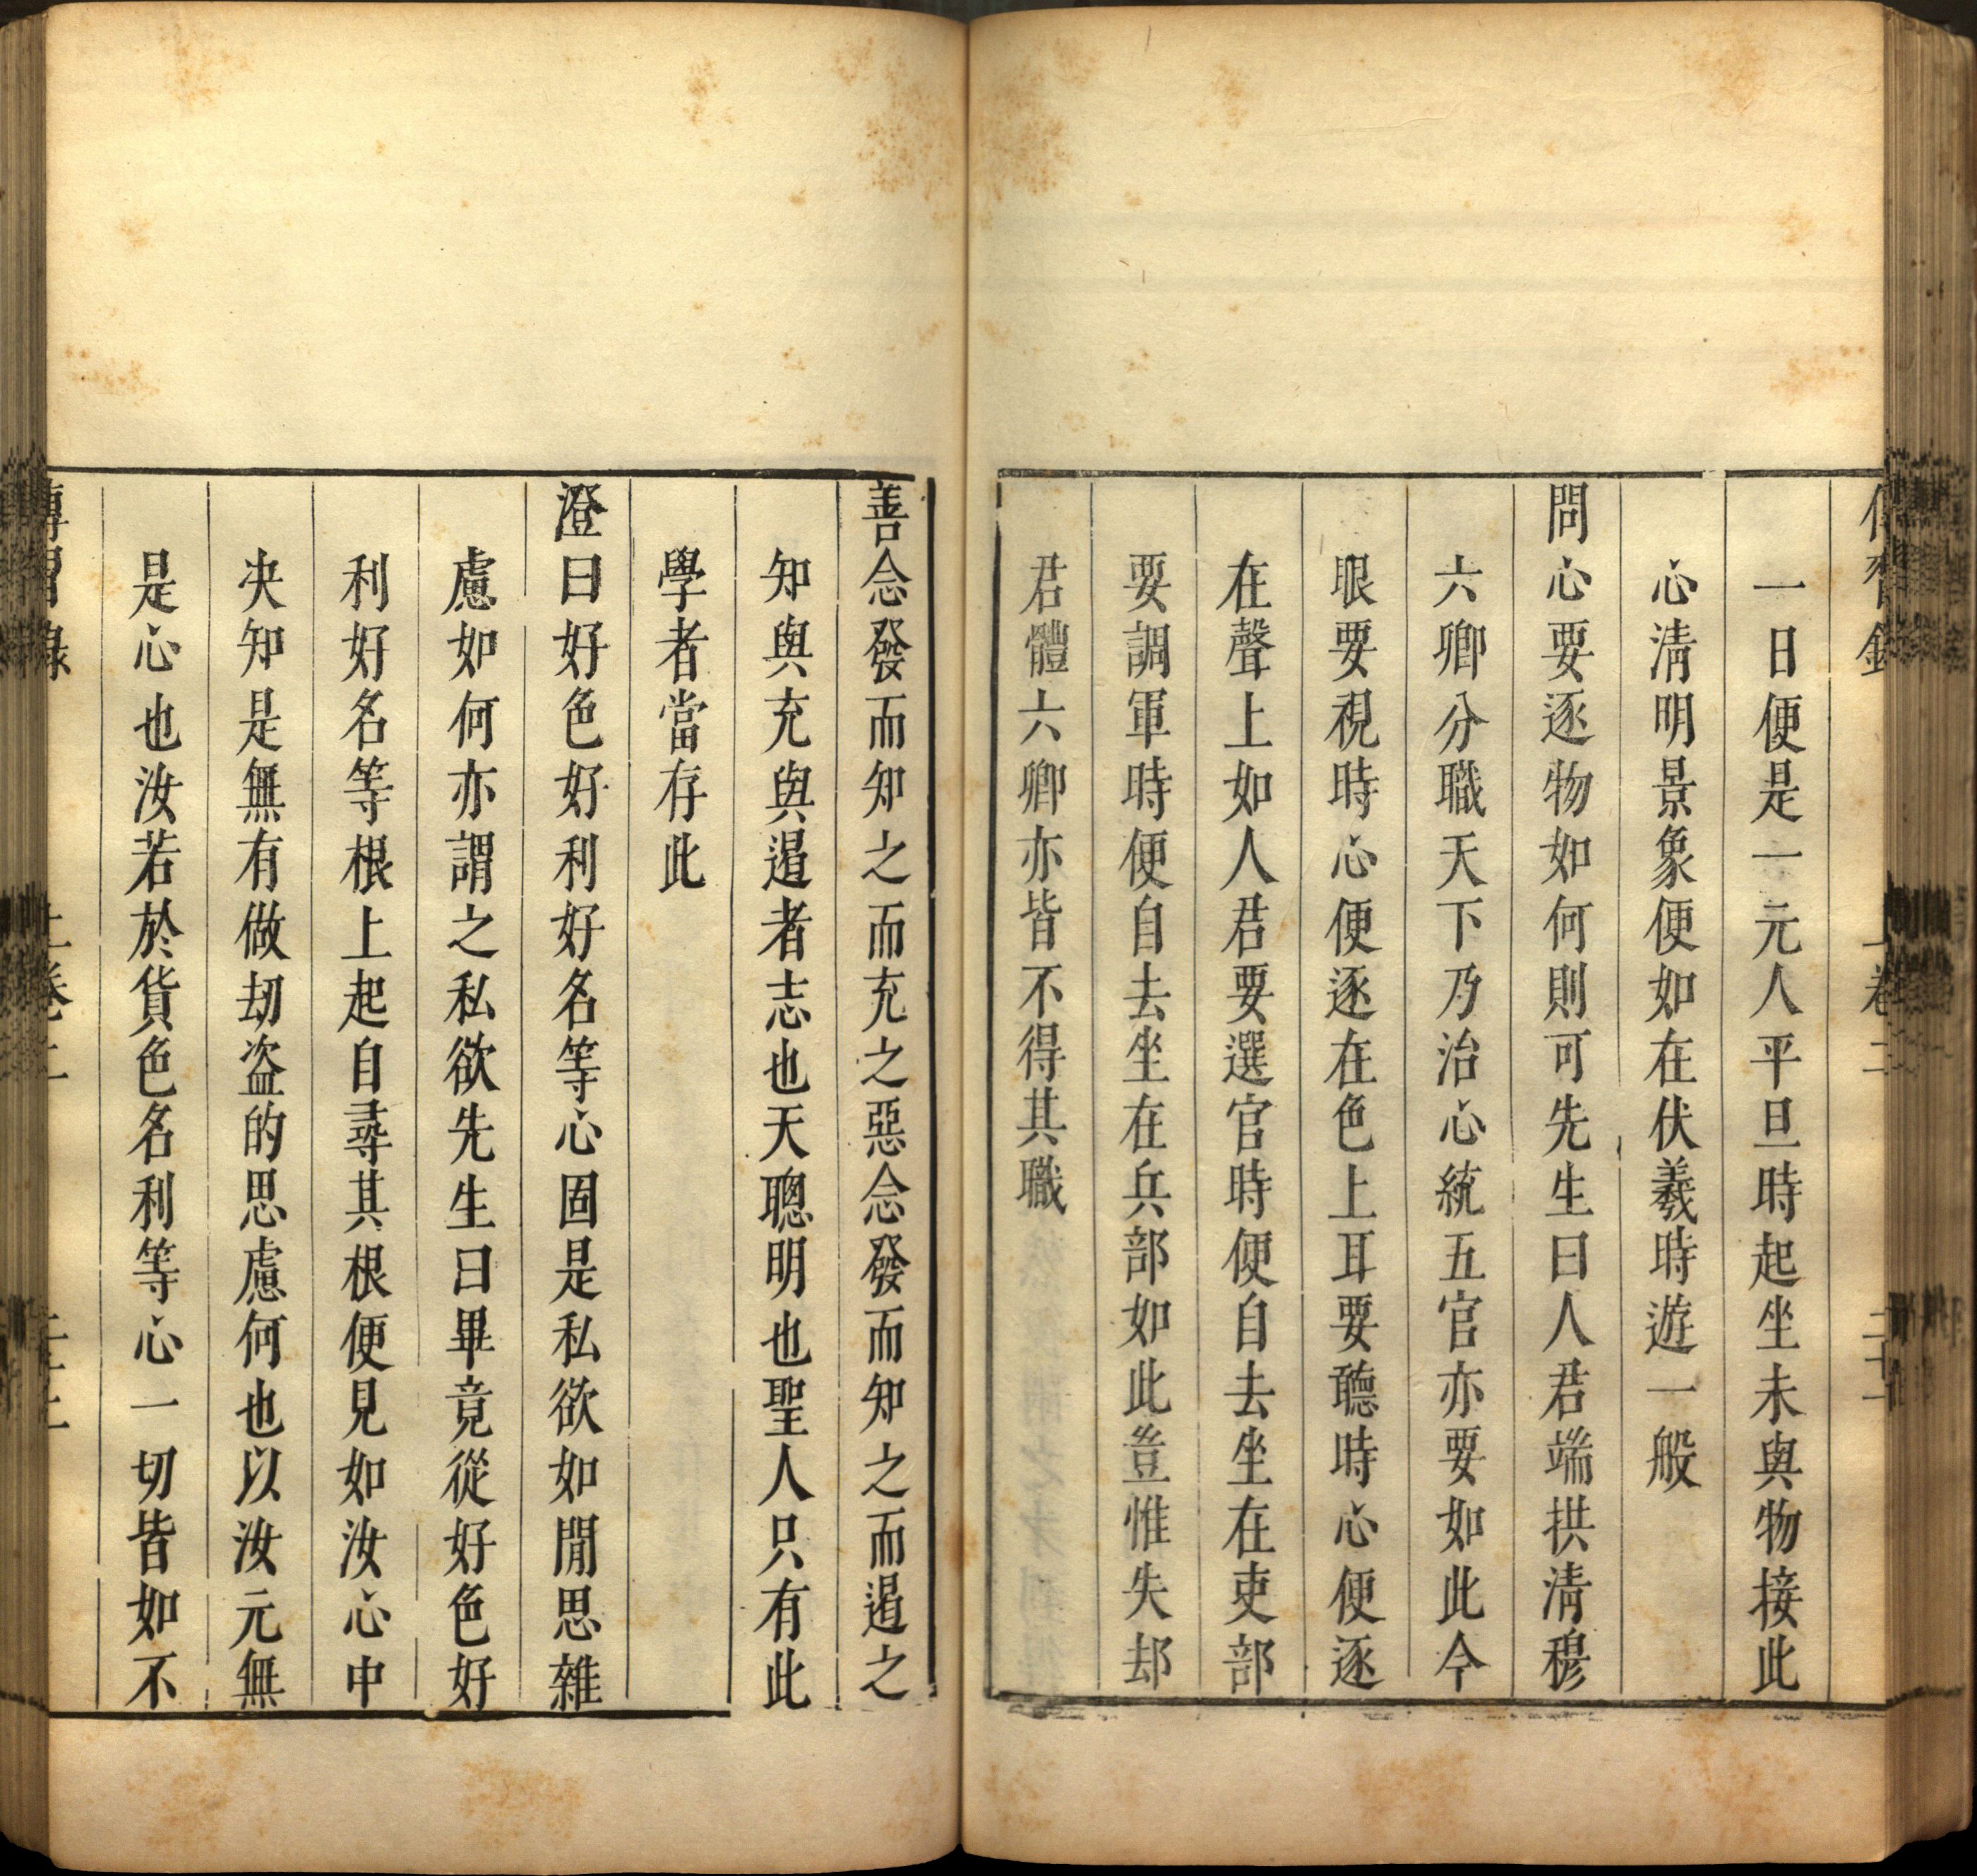 傳習錄 上卷二 二十一
一日便是一元人平旦時起坐未與物接此
心淸明景象便如在伏羲時遊一般
問心要逐物如何則可先生曰人君端拱淸穆
六卿分職天下乃治心統五官亦要如此今
眼要視時心便逐在色上耳要聽時心便逐
在聲上如人君要選官時便自去坐在吏部
要調軍時便自去坐在兵部如此豈惟失却
君體六卿亦皆不得其職
善念發而知之而充之惡念發而知之而遏之
知與充與遏者志也天聰明也聖人只有此
學者當存此
澄曰好色好利好名等心固是私欲如閒思雜
慮如何亦謂之私欲先生曰畢竟從好色好
利好名等根上起自尋其根便見如汝心中
决知是無有做刧盗的思慮何也以汝元無
是心也汝若於貨色名利等心一切皆如不
傳習錄 上卷二